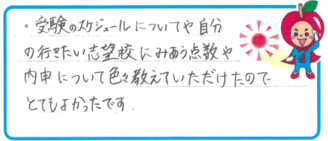 ・受験のスケジュールについてや自分
の行きたい志望校にみあう点数や
内申について色々教えていただけたので
とてもよかったです.